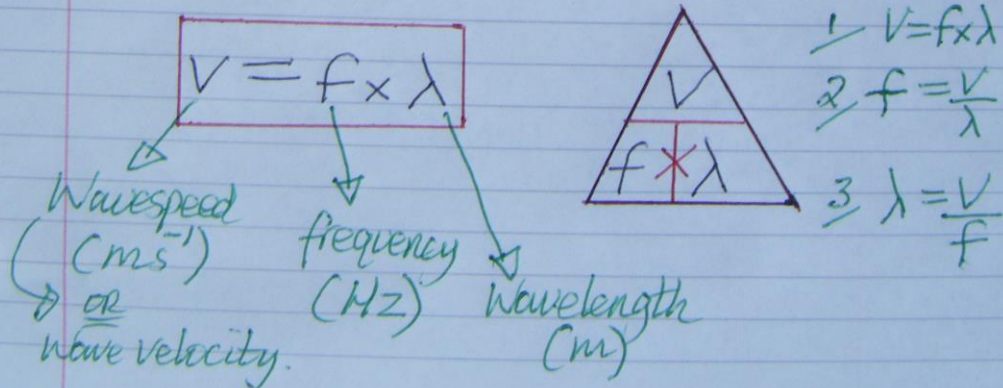 V = f × λ
Wavespeed
(ms⁻¹)
OR
Wave velocity.
frequency
(Hz)
Wavelength
(m)
V
f × λ
1 V = f × λ
2 f = V/λ
3 λ = V/f